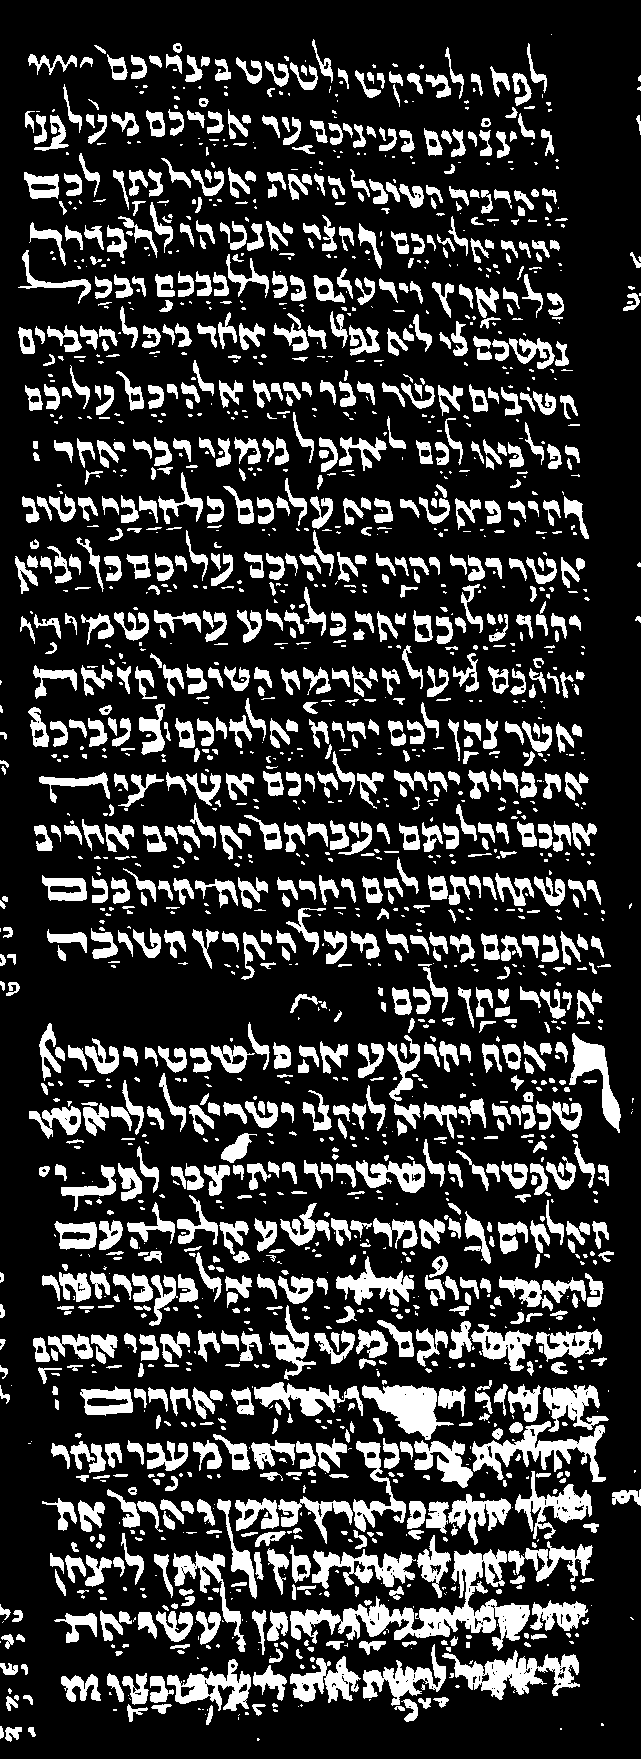 לפח ולמוקש ולשטט בצדיכם
ולצנינים בעיניכם עד אבדכם מעל פני
האדמה הטובה הזאת אשר נתן לכם
יהוה אלהיכם והנה אנכי הולך בדרך
כל הארץ וידעתם בכל לבבכם ובכל
נפשכם כי לא נפל דבר אחד מכל הדברים
הטובים אשר דבר יהוה אלהיכם עליכם
הכל באו לכם לא נפל ממנו דבר אחד :
והיה כאשר בא עליכם כל הדבר הטוב
אשר דבר יהוה אלהיכם עליכם כן יביא
יהוה עליכם את כל הרע עד השמידו
אותכם מעל האדמה הטובה הזאת
אשר נתן לכם יהוה אלהיכם : בעברכם
את ברית יהוה אלהיכם אשר צוה
אתכם והלכתם ועבדתם אלהים אחרים
והשתחויתם להם וחרה אף יהוה בכם
ואבדתם מהרה מעל הארץ הטובה
אשר נתן לכם :
ויאסף יהושע את כל שבטי ישרא
שכמה ויקרא לזקני ישראל ולראשיו
ולשפטיו ולשטריו ויתיצבו לפני
האלהים : ויאמר יהושע אל כל העם
כה אמר יהוה אלהי ישראל בעבר הנהר
ישבו אבותיכם מעולם תרח אבי אברהם
ואבי נחור ויעבדו אלהים אחרים :
ואקח את אביכם אברהם מעבר הנהר
אותו בכל ארץ כנען וארב את
זרעו ואתן לו את יצחק : ואתן ליצחק
ואתן לעשו את
הר שעיר לרשת אותו ויעקב ובניו